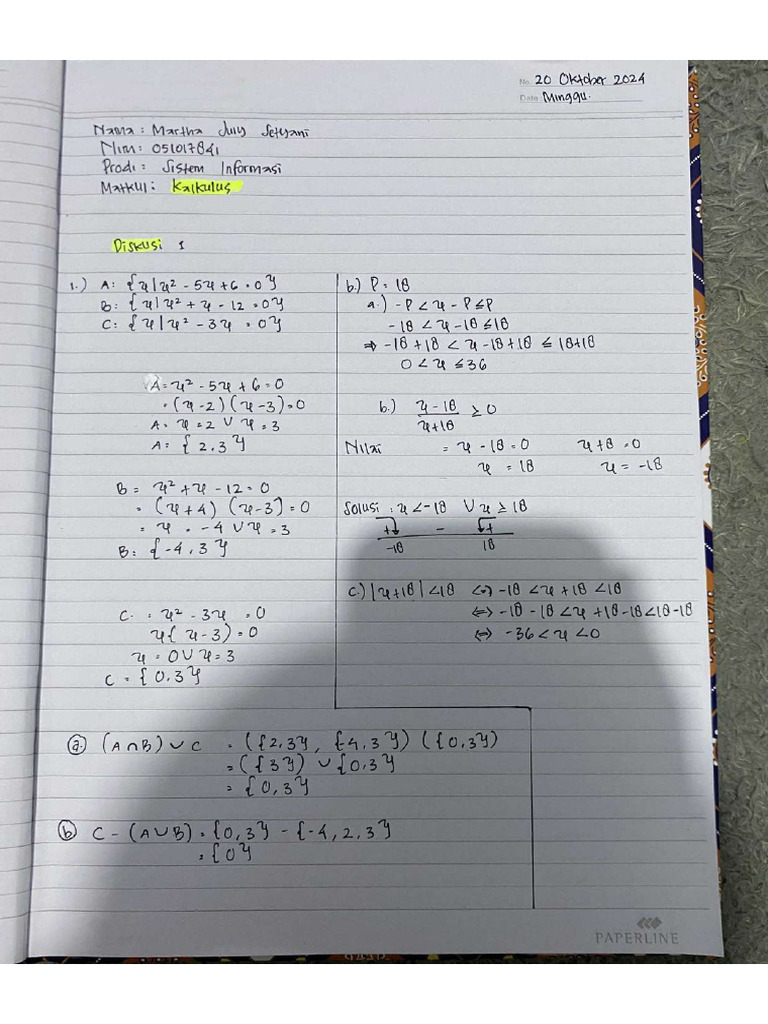 No. 20 Oktober 2024
Date Minggu.
Nama : Martha July Setyani
Nim : 051017841
Prodi : Sistem Informasi
Matkul : Kalkulus
Diskusi 1
1.) A : {x | x² - 5x + 6 = 0}
B : {x | x² + x - 12 = 0}
C : {x | x² - 3x = 0}
A = x² - 5x + 6 = 0
= (x - 2) (x - 3) = 0
A = x = 2 ∨ x = 3
A = {2, 3}
B = x² + x - 12 = 0
= (x + 4) (x - 3) = 0
= x = -4 ∨ x = 3
B = {-4, 3}
C = x² - 3x = 0
x{x - 3) = 0
x = 0 ∨ x = 3
C = {0, 3}
b.) P = 18
a.) -P < x - P ≤ P
-18 < x - 18 ≤ 18
⇒ -18 + 18 < x - 18 + 18 ≤ 18 + 18
0 < x ≤ 36
b.) x - 18 / x + 18 ≥ 0
Nilai = x - 18 = 0 x + 8 = 0
x = 18 x = -18
Solusi : x < -18 ∨ x ≥ 18
+ - +
-18 18
c.) |x + 18| < 18 ⇔ -18 < x + 18 < 18
⇔ -18 - 18 < x + 18 - 18 < 18 - 18
⇔ -36 < x < 0
a. (A ∩ B) ∪ C = ({2, 3}, {-4, 3}) ({0, 3})
= ({3}) ∪ {0, 3}
= {0, 3}
b C - (A ∪ B) = {0, 3} - {-4, 2, 3}
= {0}
PAPERLINE